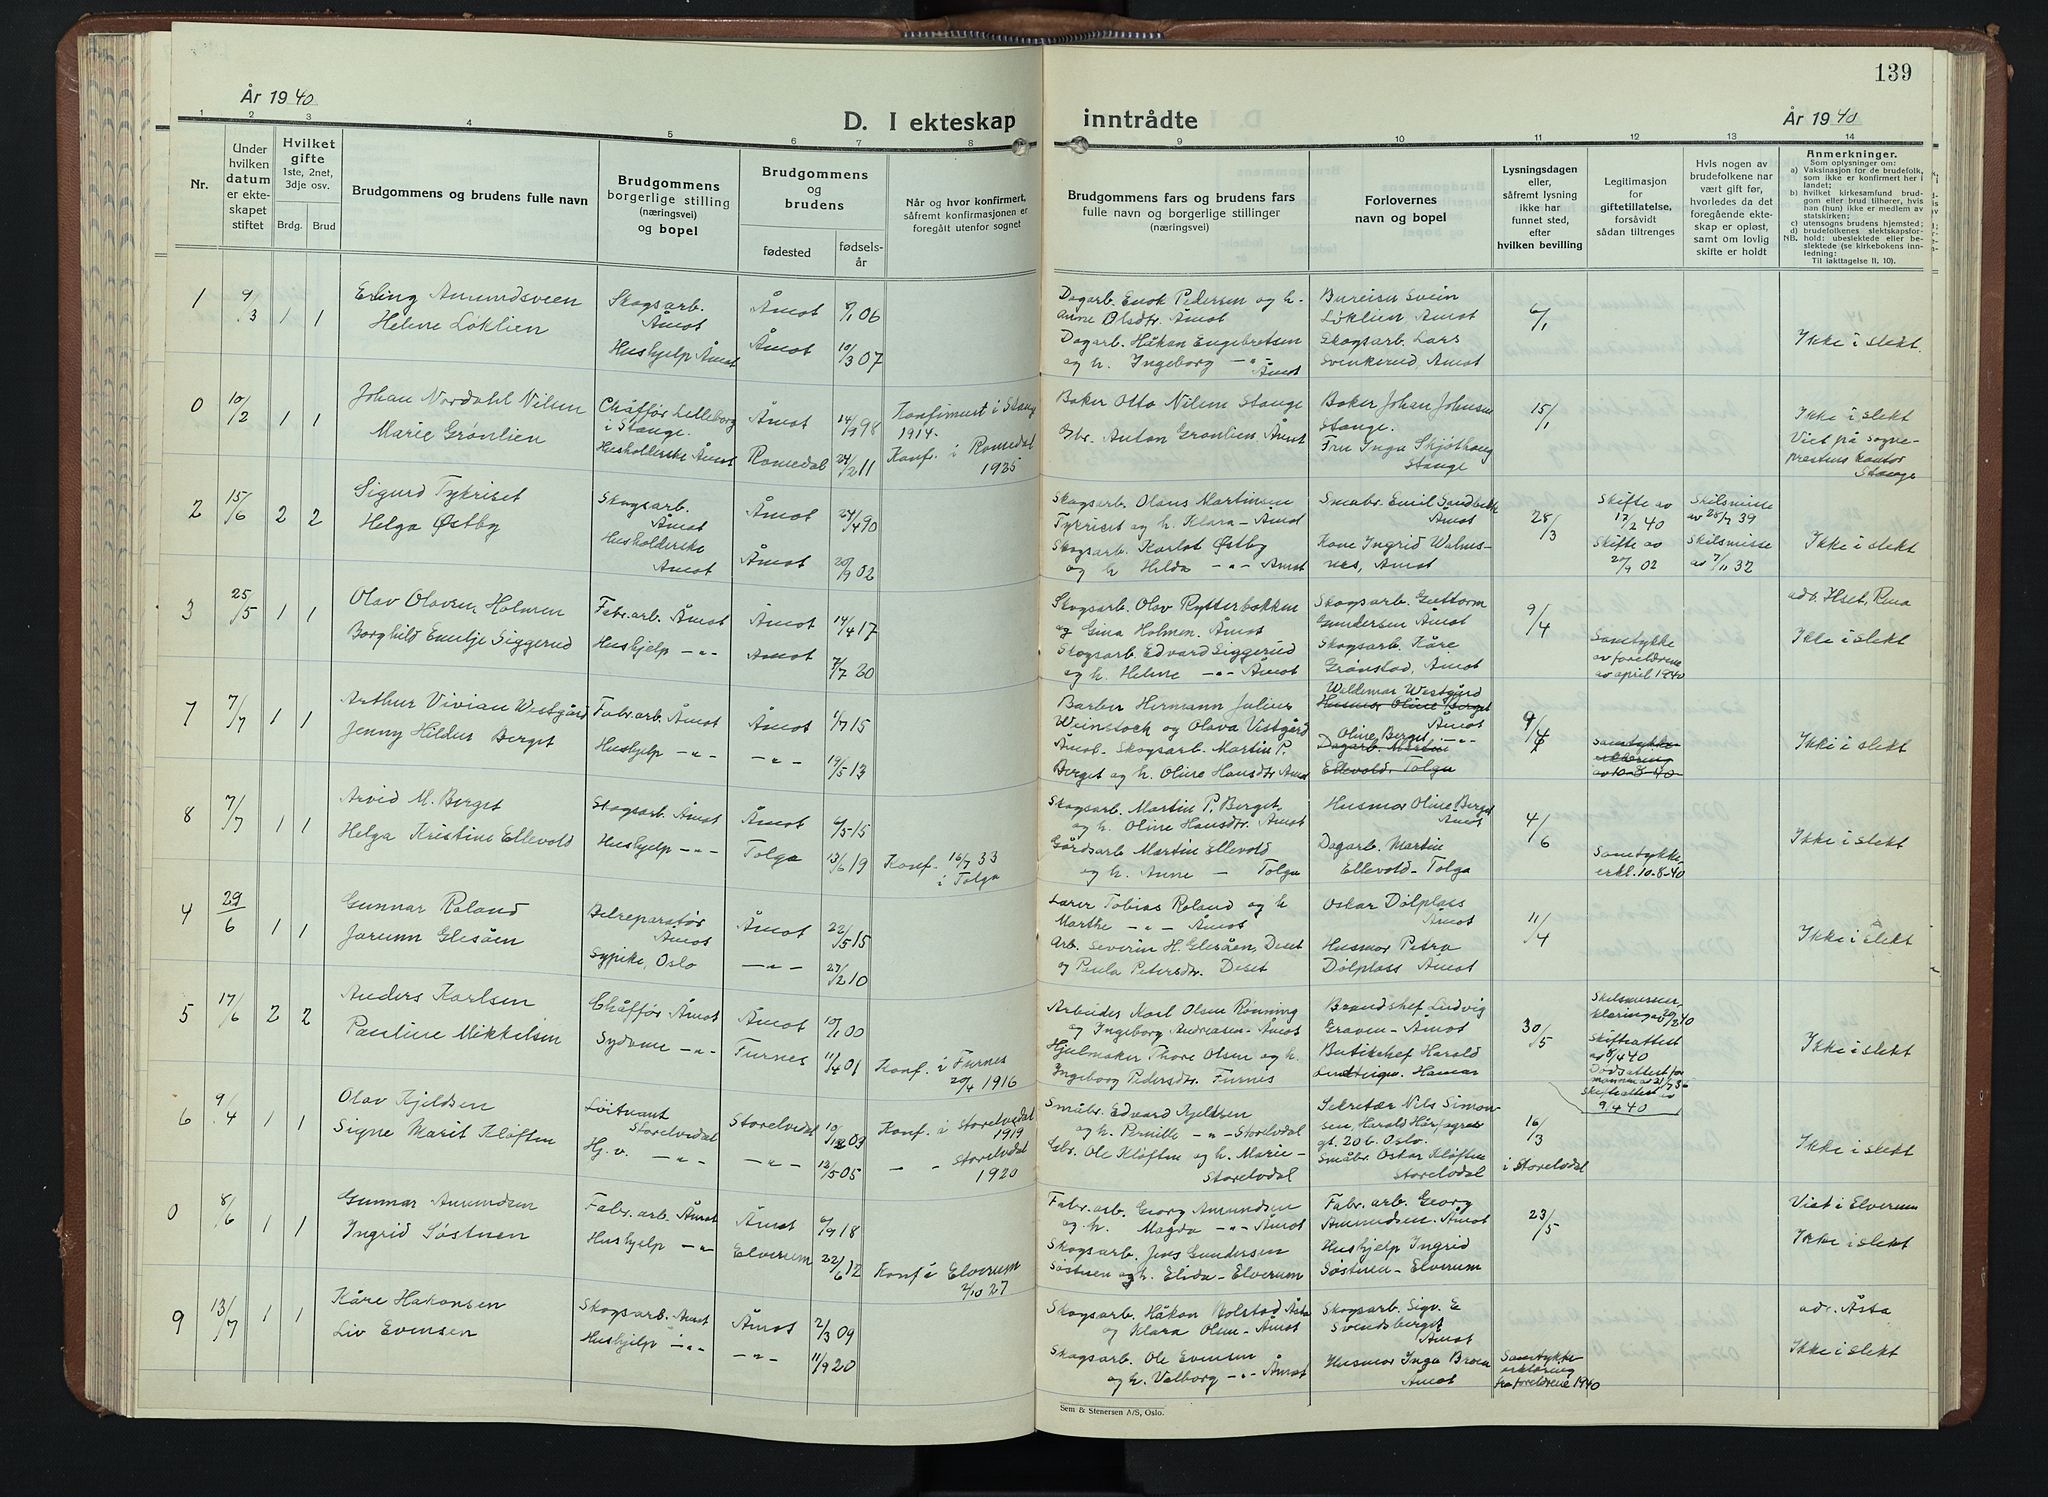 139
År 1940
D. I ekteskap inntrådte
År 1940
1 2 3 4 5 6 7 8 9 10 11 12 13 14
Nr.
Under hvilken datum er ekteskapet stiftet
Hvilket gifte 1ste, 2net, 3dje osv.
Brdg. Brud
Brudgommens og brudens fulle navn
Brudgommens borgerlige stilling (næringsvei) og bopel
Brudgommens og brudens
fødested
fødselsår
Når og hvor konfirmert, såfremt konfirmasjonen er foregått utenfor sognet
Brudgommens fars og brudens fars fulle navn og borgerlige stillinger (næringsvei)
Forlovernes navn og bopel
Lysningsdagen eller, såfremt lysning ikke har funnet sted, efter hvilken bevilling
Legitimasjon for giftetillatelse, forsåvidt sådan tiltrenges
Hvis nogen av brudefolkene har vært gift før, hvorledes da det foregående ekteskap er opløst, samt om lovlig skifte er holdt
Anmerkninger.
Som oplysninger om:
a) Vaksinasjon for de brudefolk, som ikke er konfirmert her i landet;
b) hvilket kirkesamfund brudgom eller brud tilhører, hvis han (hun) ikke er medlem av statskirken;
c) utensogns brudens hjemsted;
d) brudefolkenes slektskapsforhold: ubeslektede eller beslektede (se kirkebokens innledning:
NB. Til iakttagelse II, 10).
1 9/3 1 1 Erling Amundsveen Skogsarb. Åmot Åmot 06
Helene Løklien Hushjelp Åmot Åmot 10/3 07
Dagarb. Enok Pedersen og h. Anne Olsdtr. Åmot
Dagarb. Håkan Engebretsen og h. Ingeborg -"- Åmot
Bureiser Svein Løklien Åmot
Skogsarb. Lars Svenkerud, Åmot
6/1 Ikke i slekt.
0 10/2 1 1 Johan Nordahl Nilsen Chåffør Lilleborg i Stange. Åmot 98 Konfirmert i Stange 1914.
Marie Grønlien Husholderske Åmot Romedal 24/2 11 Konf. i Romedal 1925
Baker Otto Nilsen Stange
Gbr. Anton Grønlien Åmot
Baker Johan Johnsen Stange.
Fru Inga Skjøthaug Stange
15/1 Ikke i slekt
Viet på sogneprestens kontor Stange
2 15/6 2 2 Sigurd Tykriset Skogsarb. Åmot Åmot 24/4 90
Helga Østby Husholderske Åmot Åmot 20/9 02
Skogsarb. Olaus Martinsen Tykriset og h. Klara - Åmot
Skogsarb. Karlot Østby og h Hilda -"- Åmot
Småbr. Emil Sandbakk Åmot
Kone Ingrid Walmsnes, Åmot
28/3 Skifte av 12/2 40 Skilsmisse av 28/7 39
Skifte av 02 Skilsmisse av 7/11 32
Ikke i slekt
3 25/5 1 1 Olav Olavsen Holmen Fabr.arb. Åmot Åmot 14/4 17
Borghild Emilje Siggerud Hushjelp -"- Åmot 7/7 20
Skogsarb. Olav Rytterbakken og Gina Holmen. Åmot
Skogsarb. Edvard Siggerud og h. Helene -"- Åmot
Skogsarb. Guttorm Gundersen Åmot
Skogsarb. Kåre Grønstad, Åmot
9/4 Samtykke av foreldrene av april 1940
adr. Hset, Rena
Ikke i slekt
7 7/7 1 1 Arthur Vivian Westgård Fabr.arb. Åmot Åmot 15
Jenny Hildur Berget Hushjelp -"- -"- 19/5 13
Barber Hermann Julius Weinstock og Olava Vestgård Åmot - Skogsarb. Martin P. Berget og h. Oline Hansdtr Åmot
Waldemar Westgård
Husmor Oline Berget Åmot
Oline Berget -"-
Dagarb. Martin Ellevold. Tolga
Samtykkeerklæring av 10-8-40
Ikke i slekt
8 7/7 1 1 Arvid M. Berget Skogsarb. Åmot Åmot 6/5-15
Helga Kristine Ellevold Hushjelp -"- Tolga 13/6 19 Konf. 16/7 33 i Tolga
Skogsarb. Martin P. Berget og h. Oline Hansdtr. Åmot
Gårdsarb Martin Ellevold og h. Anne - Tolga
Husmor Oline Berget Åmot
Dagarb. Martin Ellevold - Tolga
4/6 Samtykkeerkl. 10-8-40
Ikke i slekt
4 29/6 1 1 Gunnar Roland Bilreparatør Åmot Åmot 22/5 15
Jorunn Glesåen Sypike, Oslo -"- 27/2 10
Lærer Tobias Roland og h Marthe -"- Åmot
Arb. Severin H. Glesåen, Deset og Paula Petersdtr. Deset
Oskar Dølplass Åmot
Husmor Petra Dølplass Åmot
11/4 Ikke i slekt
5 17/6 2 2 Anders Karlsen Chåffør Åmot Åmot 10/1 00
Pauline Mikkelsen Sydame -"- Furnes 11/4 01 Konf. i Furnes 20/4 1916
Arbeider Karl Olsen Rønning og Ingeborg Andreasen - Åmot
Hjulmaker Thore Olsen og h. Ingeborg Pedersdtr. Furnes
Brandshef Ludvig Graven - Åmot
Butikshef Harald Hamar
30/5 Skifteattest av 8/4 40
Dødsattest for mannen av 21/7 36
Skifteattest av 9/4 40
Ikke i slekt
6 9/4 1 1 Olav Kjeldsen Løitnant Storelvdal Storelvdal 09 Konf. i Storelvedal 1919
Signe Marit Kløften Hj.v. -"- -"- 05 - - Storelvdal 1920
Småbr. Edvard Kjeldsen og h. Pernille -"- Storelvdal
Gbr. Ole Kløften og h. Marie - Storelvdal
Sekretær Nils Simonsen, Harald Hårfagres gt. 20 b. Oslo.
Småbr. Oskar Kløften Storelvdal
16/3 i Storelvdal
Ikke i slekt
0 8/6 1 1 Gunnar Amundsen Fabr. arb. Åmot Åmot 18
Ingrid Søstuen Hushjelp -"- Elverum 22/6 12 Konf i Elverum 2/10 27
Fabr. arb. Georg Amundsen og h. Magda -"- Åmot
Skogsarb. Jens Gundersen Søstuen og h. Elida - Elverum
Fabr. arb. Georg Amundsen. Åmot
Hushjelp Ingrid Søstuen - Elverum
23/5 Viet i Elverum
Ikke i slekt
9 13/7 1 1 Kåre Hakonsen Skogsarb. Åmot Åmot 2/3 09
Liv Evensen Hushjelp -"- -"- 11/9 20
Skogsarb. Håkon Bolstad Åsta og Klara Olsen - Åmot
Skogsarb. Ole Evensen og h. Valborg -"- Åmot
Skogsarb. Sigv. E Svendsberget Åmot
Husmor Inga Åmot
Samtykkeerklæring fra foreldrene 1940
adr. Åsta
Ikke i slekt
Sem & Stenersen A/S, Oslo.